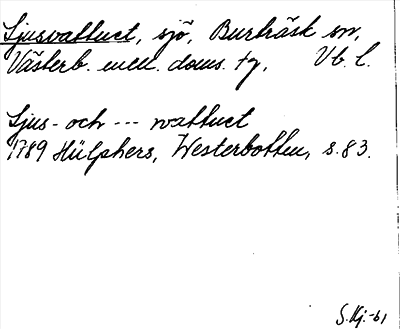 Ljusvattnet, sjö, Burträsk sn,
Västerb. mell. doms. tg, Vb. l.
Ljus- och --- wattnet
1789 Hülphers, Westerbotten, s. 83.
S. Kj.-61